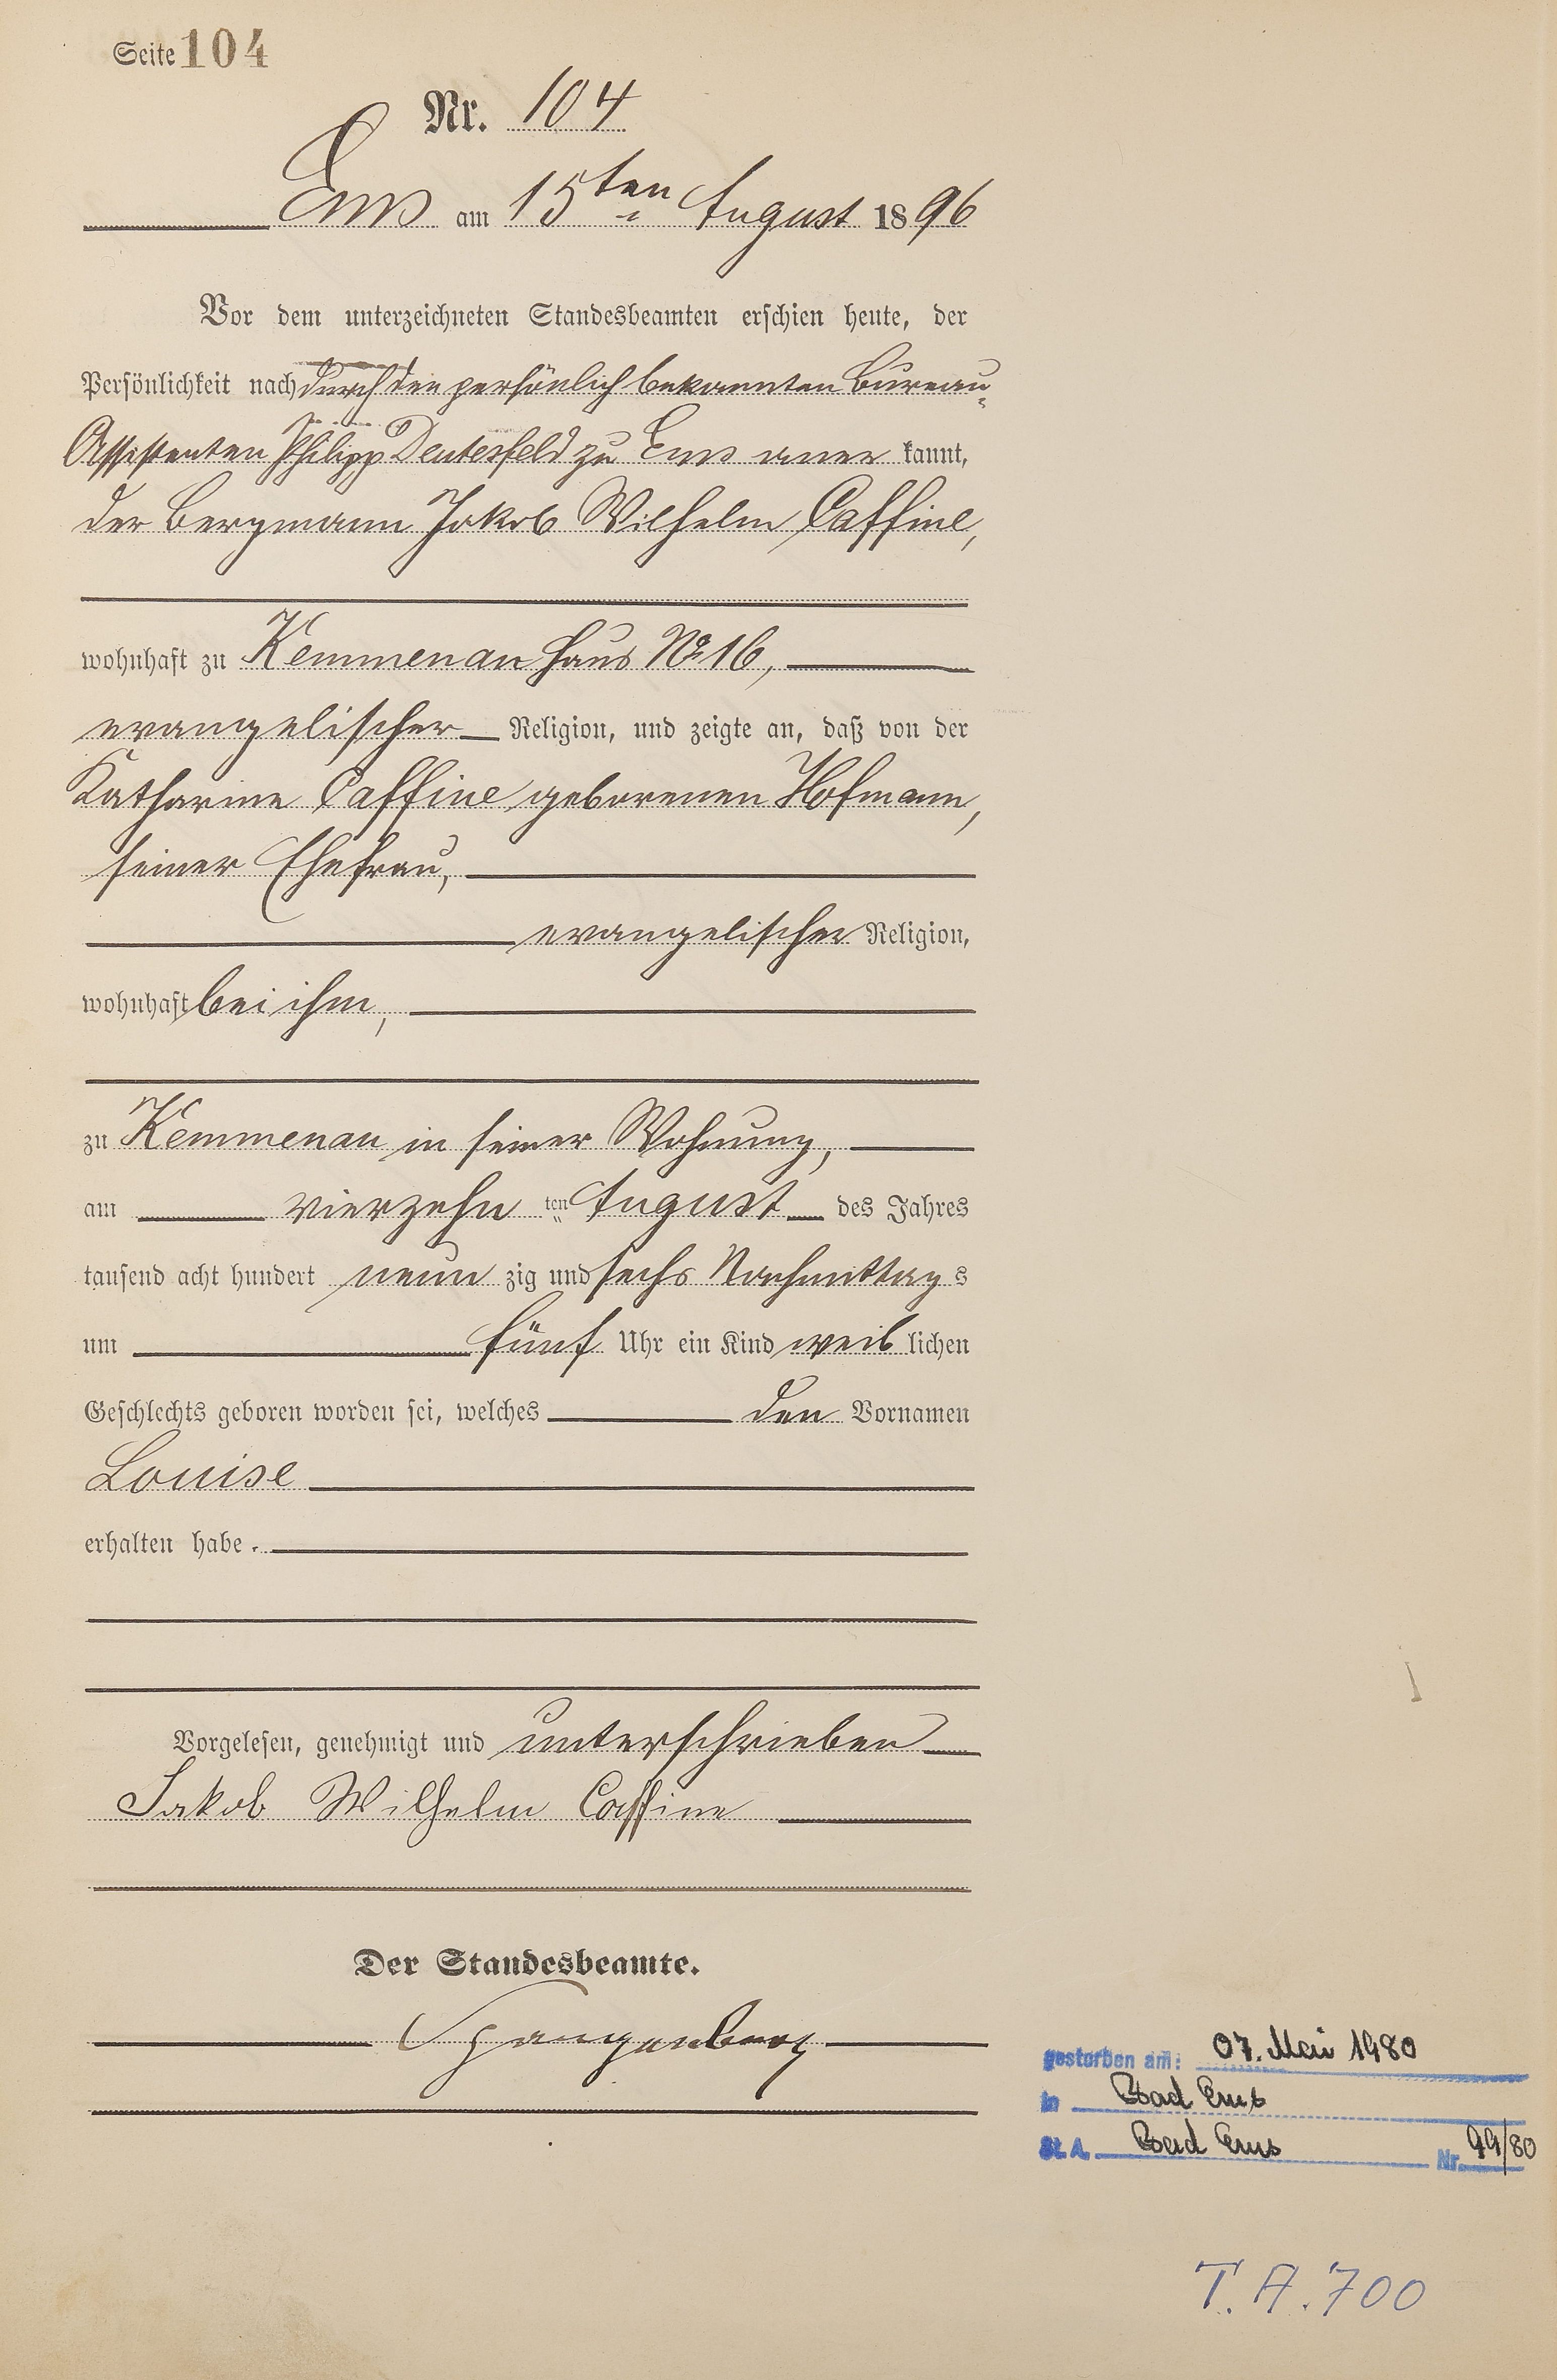 Seite 104
Nr. 104
Ems am 15ten August 1896
Vor dem unterzeichneten Standesbeamten erschien heute, der
Persönlichkeit nach durch den persönlich bekannten Bureau-
Assistenten Philipp Deutesfeld zu Ems aner kannt,
der Bergmann Jakob Wilhelm Caffine,
wohnhaft zu Kemmenau Haus No 16,
evangelischer Religion, und zeigte an, daß von der
Katharine Caffine geborenen Hofmann,
seiner Ehefrau,
evangelischer Religion,
wohnhaft bei ihm,
zu Kemmenau in seiner Wohnung,
am vierzehn ten August des Jahres
tausend acht hundert neun zig und sechs Nachmittag s
um fünf Uhr ein Kind weib lichen
Geschlechts geboren worden sei, welches den Vornamen
Louise
erhalten habe.
Vorgelesen, genehmigt und unterschrieben
Jakob Wilhelm Caffine
Der Standesbeamte.
Spangenberg
gestorben am: 07. Mai 1980
in Bad Ems
St. A. Bad Ems Nr. 99/80
T. A. 700